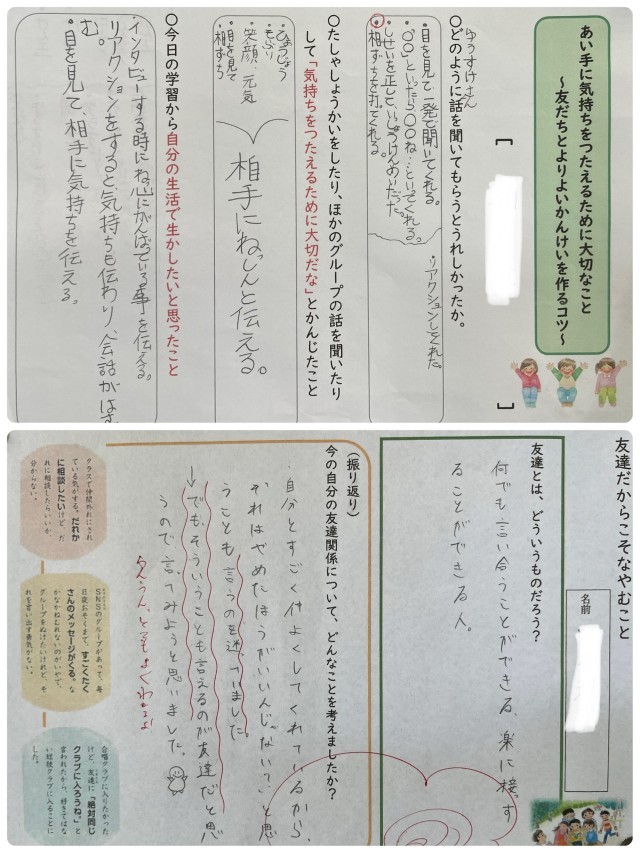 あい手に気持ちをつたえるために大切なこと
～友だちとよりよいかんけいを作るコツ～
〇どのように話を聞いてもらうとうれしかったか。
ゆうすけさん
目を見て一発で聞いてくれる。
「〇〇」といったら〇〇ね…といってくれる。
しせいを正して、いっしょうけんめいだった。
相づちを打てくれる。
・リアクションしてくれた。
〇たしゃしょうかいをしたり、ほかのグループの話を聞いたり
して「気持ちをつたえるために大切だな」とかんじたこと
ひょうじょう
笑顔、元気
目を見て
相ずち
相手にねっしんと伝える。
〇今日の学習から自分の生活で生かしたいと思ったこと
・インタビューする時にね心にがんばている事を伝える。
リアクションをすると、気持ちも伝わり、会話がはず
む。
・目を見て、相手に気持ちを伝える。
友達だからこそなやむこと
名前
友達とは、どういうものだろう？
何でも言い合うことができる、楽に接す
ることができる人。
（振り返り）
今の自分の友達関係について、どんなことを考えましたか？
・自分とすごく仲よくしてくれているから、
それはやめたほうがいいんじゃない？と思
うことも言うのを迷っていました。
→でも、そういうことも言えるのが友達だと思
うので言ってみようと思いました。
うんうん、とてもよくわかるよ
クラスで仲間外れにされ
ている気がする。だれか
に相談したいけど、だ
れに相談したらいいか、
分からない。
SNSのグループがあって、毎
日夜おそくまで、すごくたく
さんのメッセージがくる。な
かなかねむれないのがいやで、
グループをぬけたいけれど、そ
れを言い出す勇気がない。
合唱クラブに入りたかった
けど、友達に「絶対同じ
クラブに入ろうね。」と
言われたから、好きではな
い球技クラブに入ることに
した。